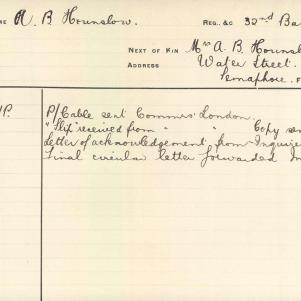 ME A. B. Hounslow. REG. &C 32nd Ba
NEXT OF KIN Mrs A. B. Hounsl
ADDRESS Water Street.
Semaphore.
P. P/Cable sent Commrs' London.
"Slip" received from " " Copy sen
Letter of acknowledgement from Inquirer
Final circular letter forwarded